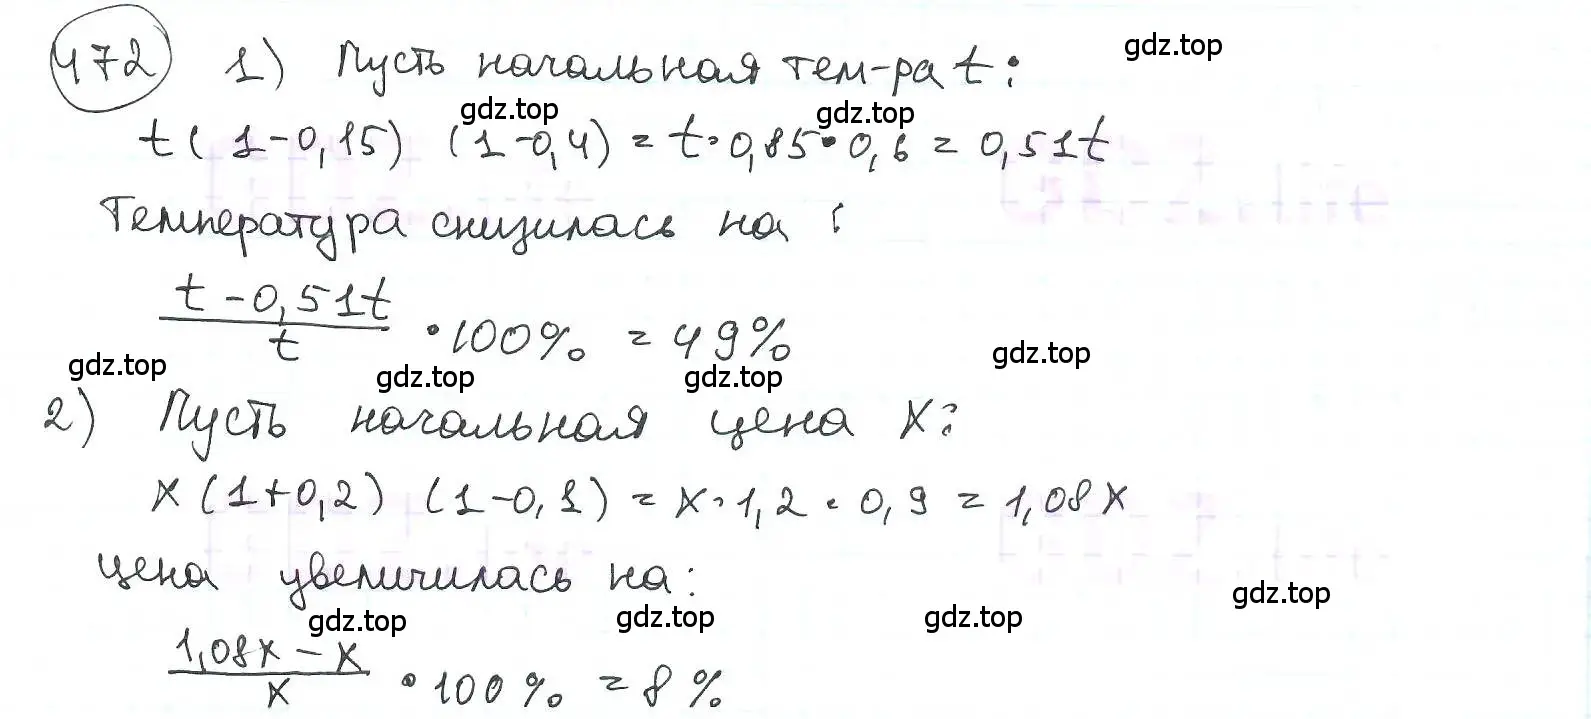 472 1) Пусть начальная тем-ра t:
t(1-0,15) (1-0,4) = t·0,85·0,6 = 0,51t
Температура снизилась на :
t-0,51t / t · 100% = 49%
2) Пусть начальная цена x:
x(1+0,2) (1-0,1) = x·1,2·0,9 = 1,08x
цена увеличилась на:
1,08x-x / x · 100% = 8%
gdz.top
gdz.top
gdz.top
gdz.top
gdz.top
gdz.top
gdz.top
gdz.top
gdz.top
gdz.top
gdz.top